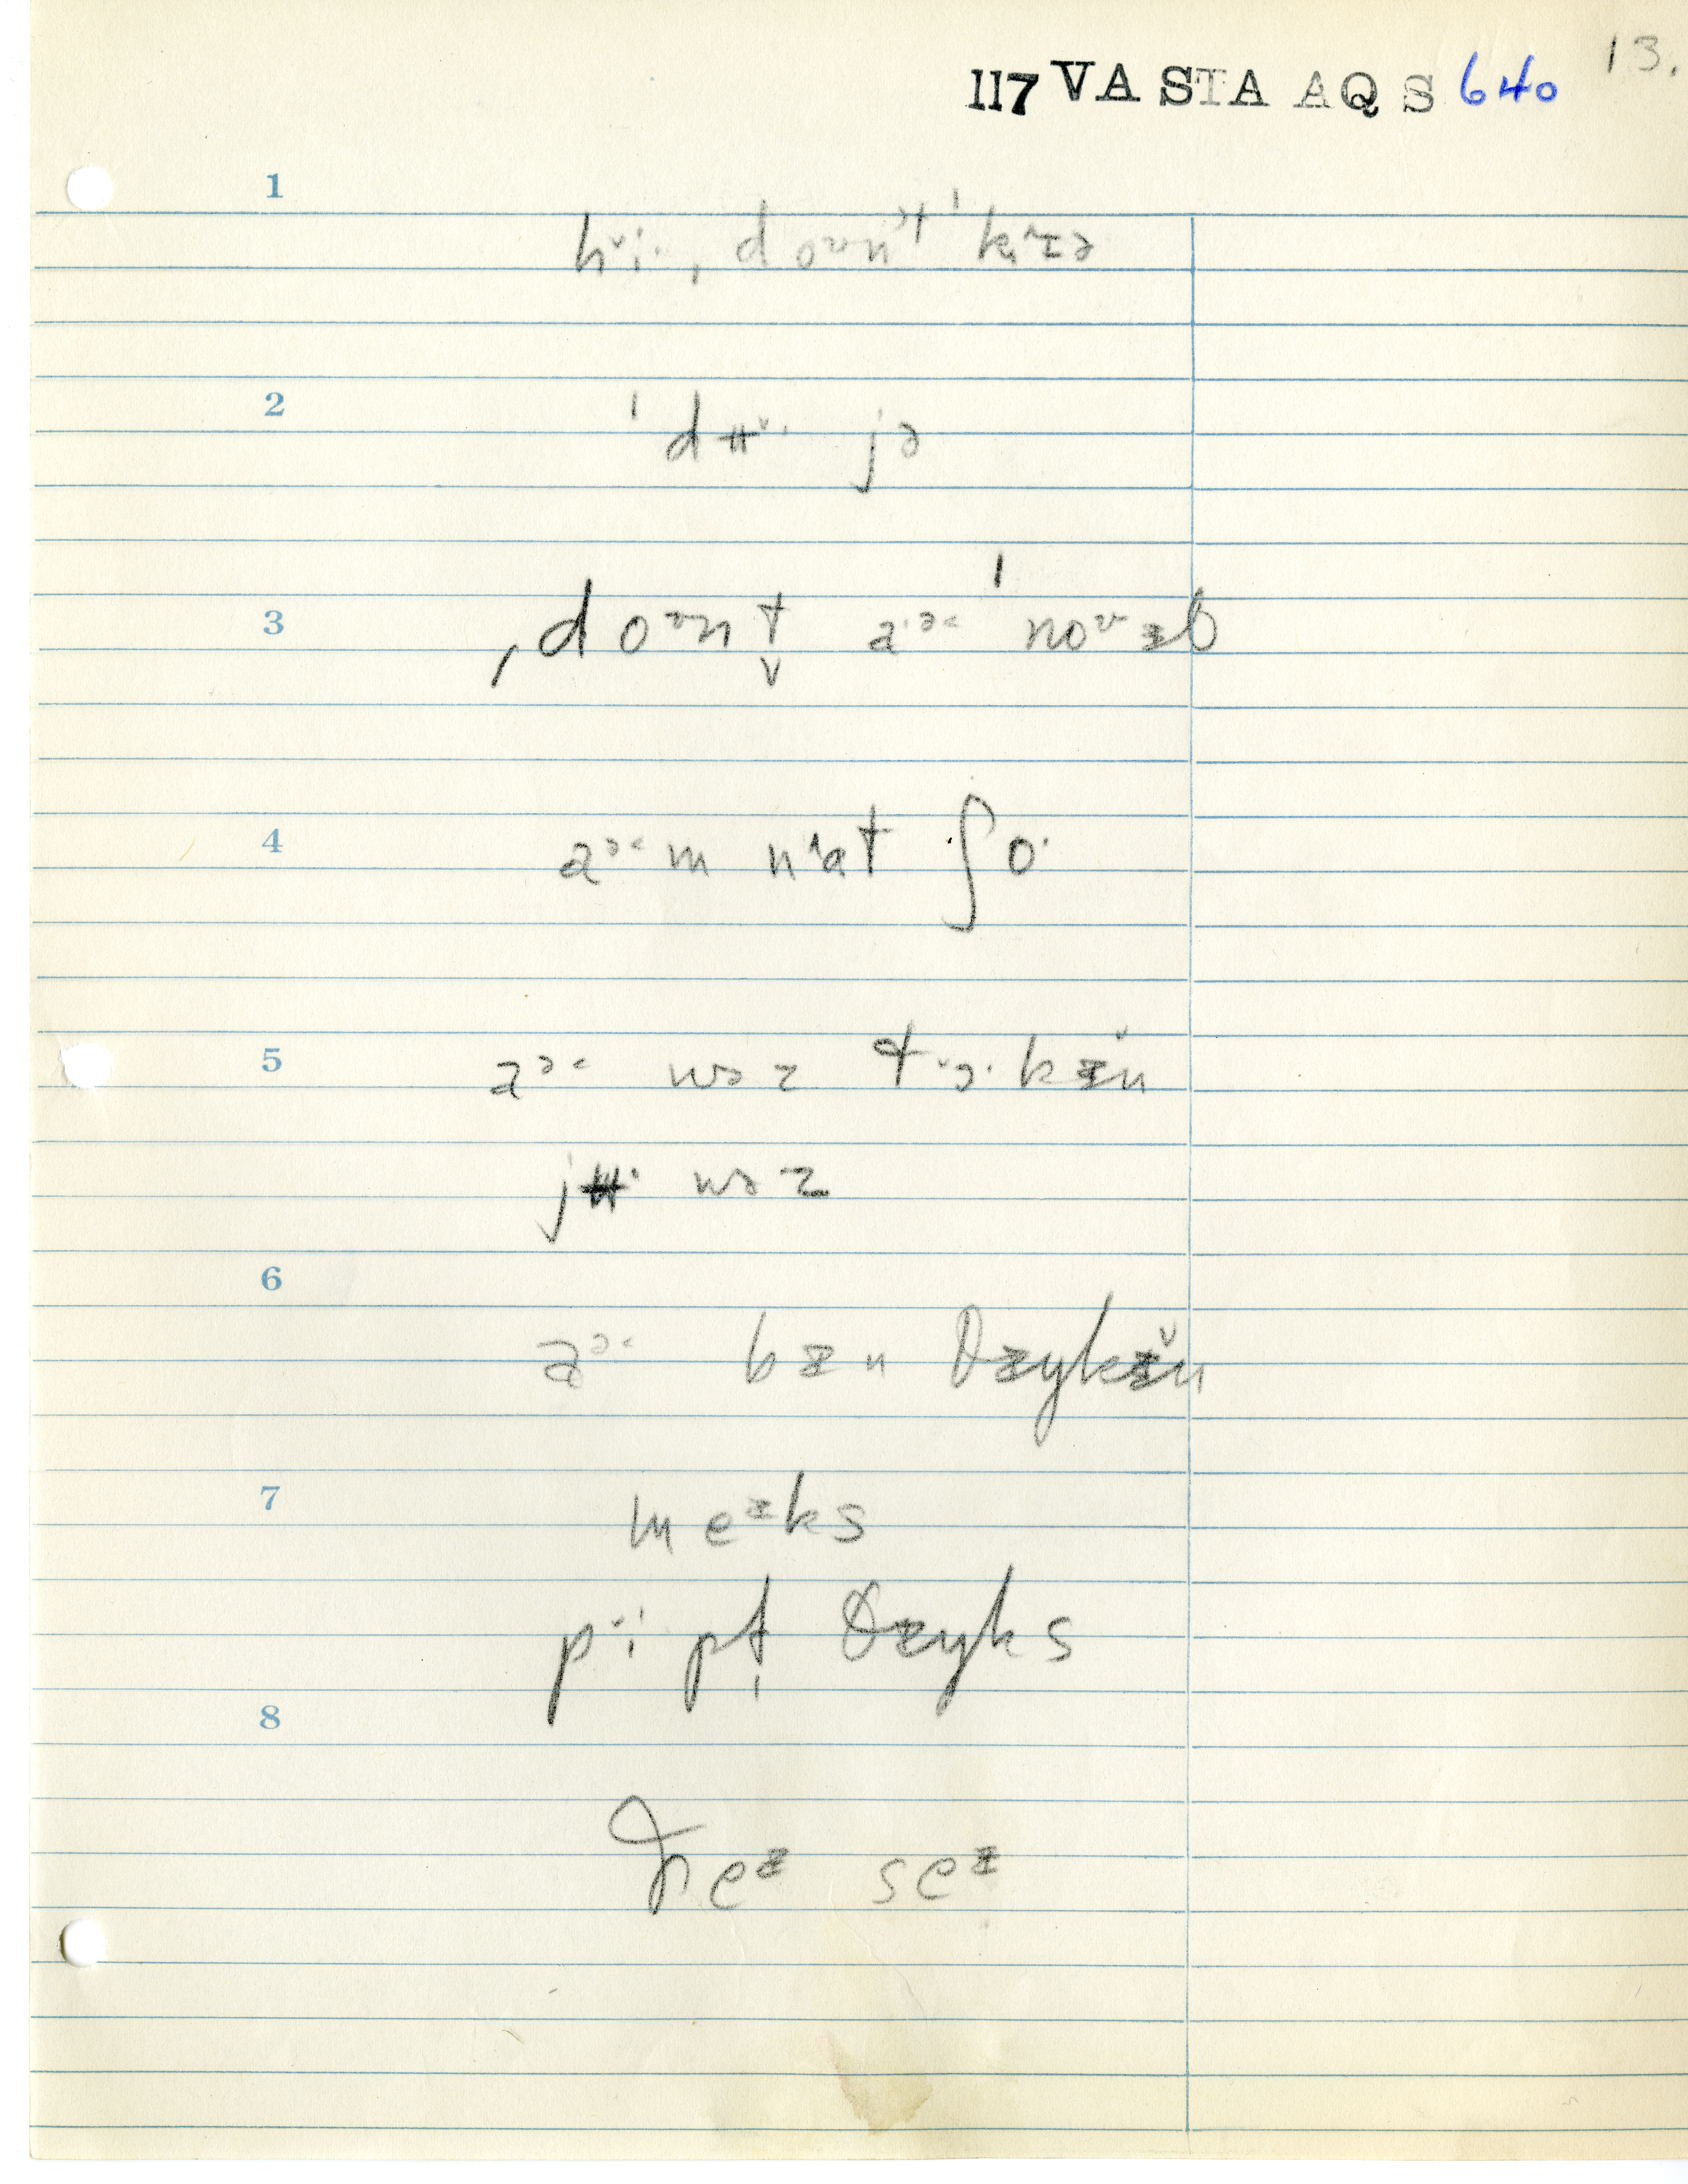 117 VA STA AQS 640 13.
1
hᵛi·, doᶷnˀt ˈkɪɚə
2
ˈdʉᵛ· jə
3
ˌdoᶷnt̬ a·ᵊ˂ ˈnoᶷ ɪt
4
aᵊ˂m nˈat ʃo·
5
aᵊ˂ wəz tɔ·kɪ̆n
jʉ· wəz
6
aᵊ˂ bɪn θɪŋkɪ̆n
7
meᶦks
pᵛipt̩ θɪŋks
8
ðeᶦ seᶦ